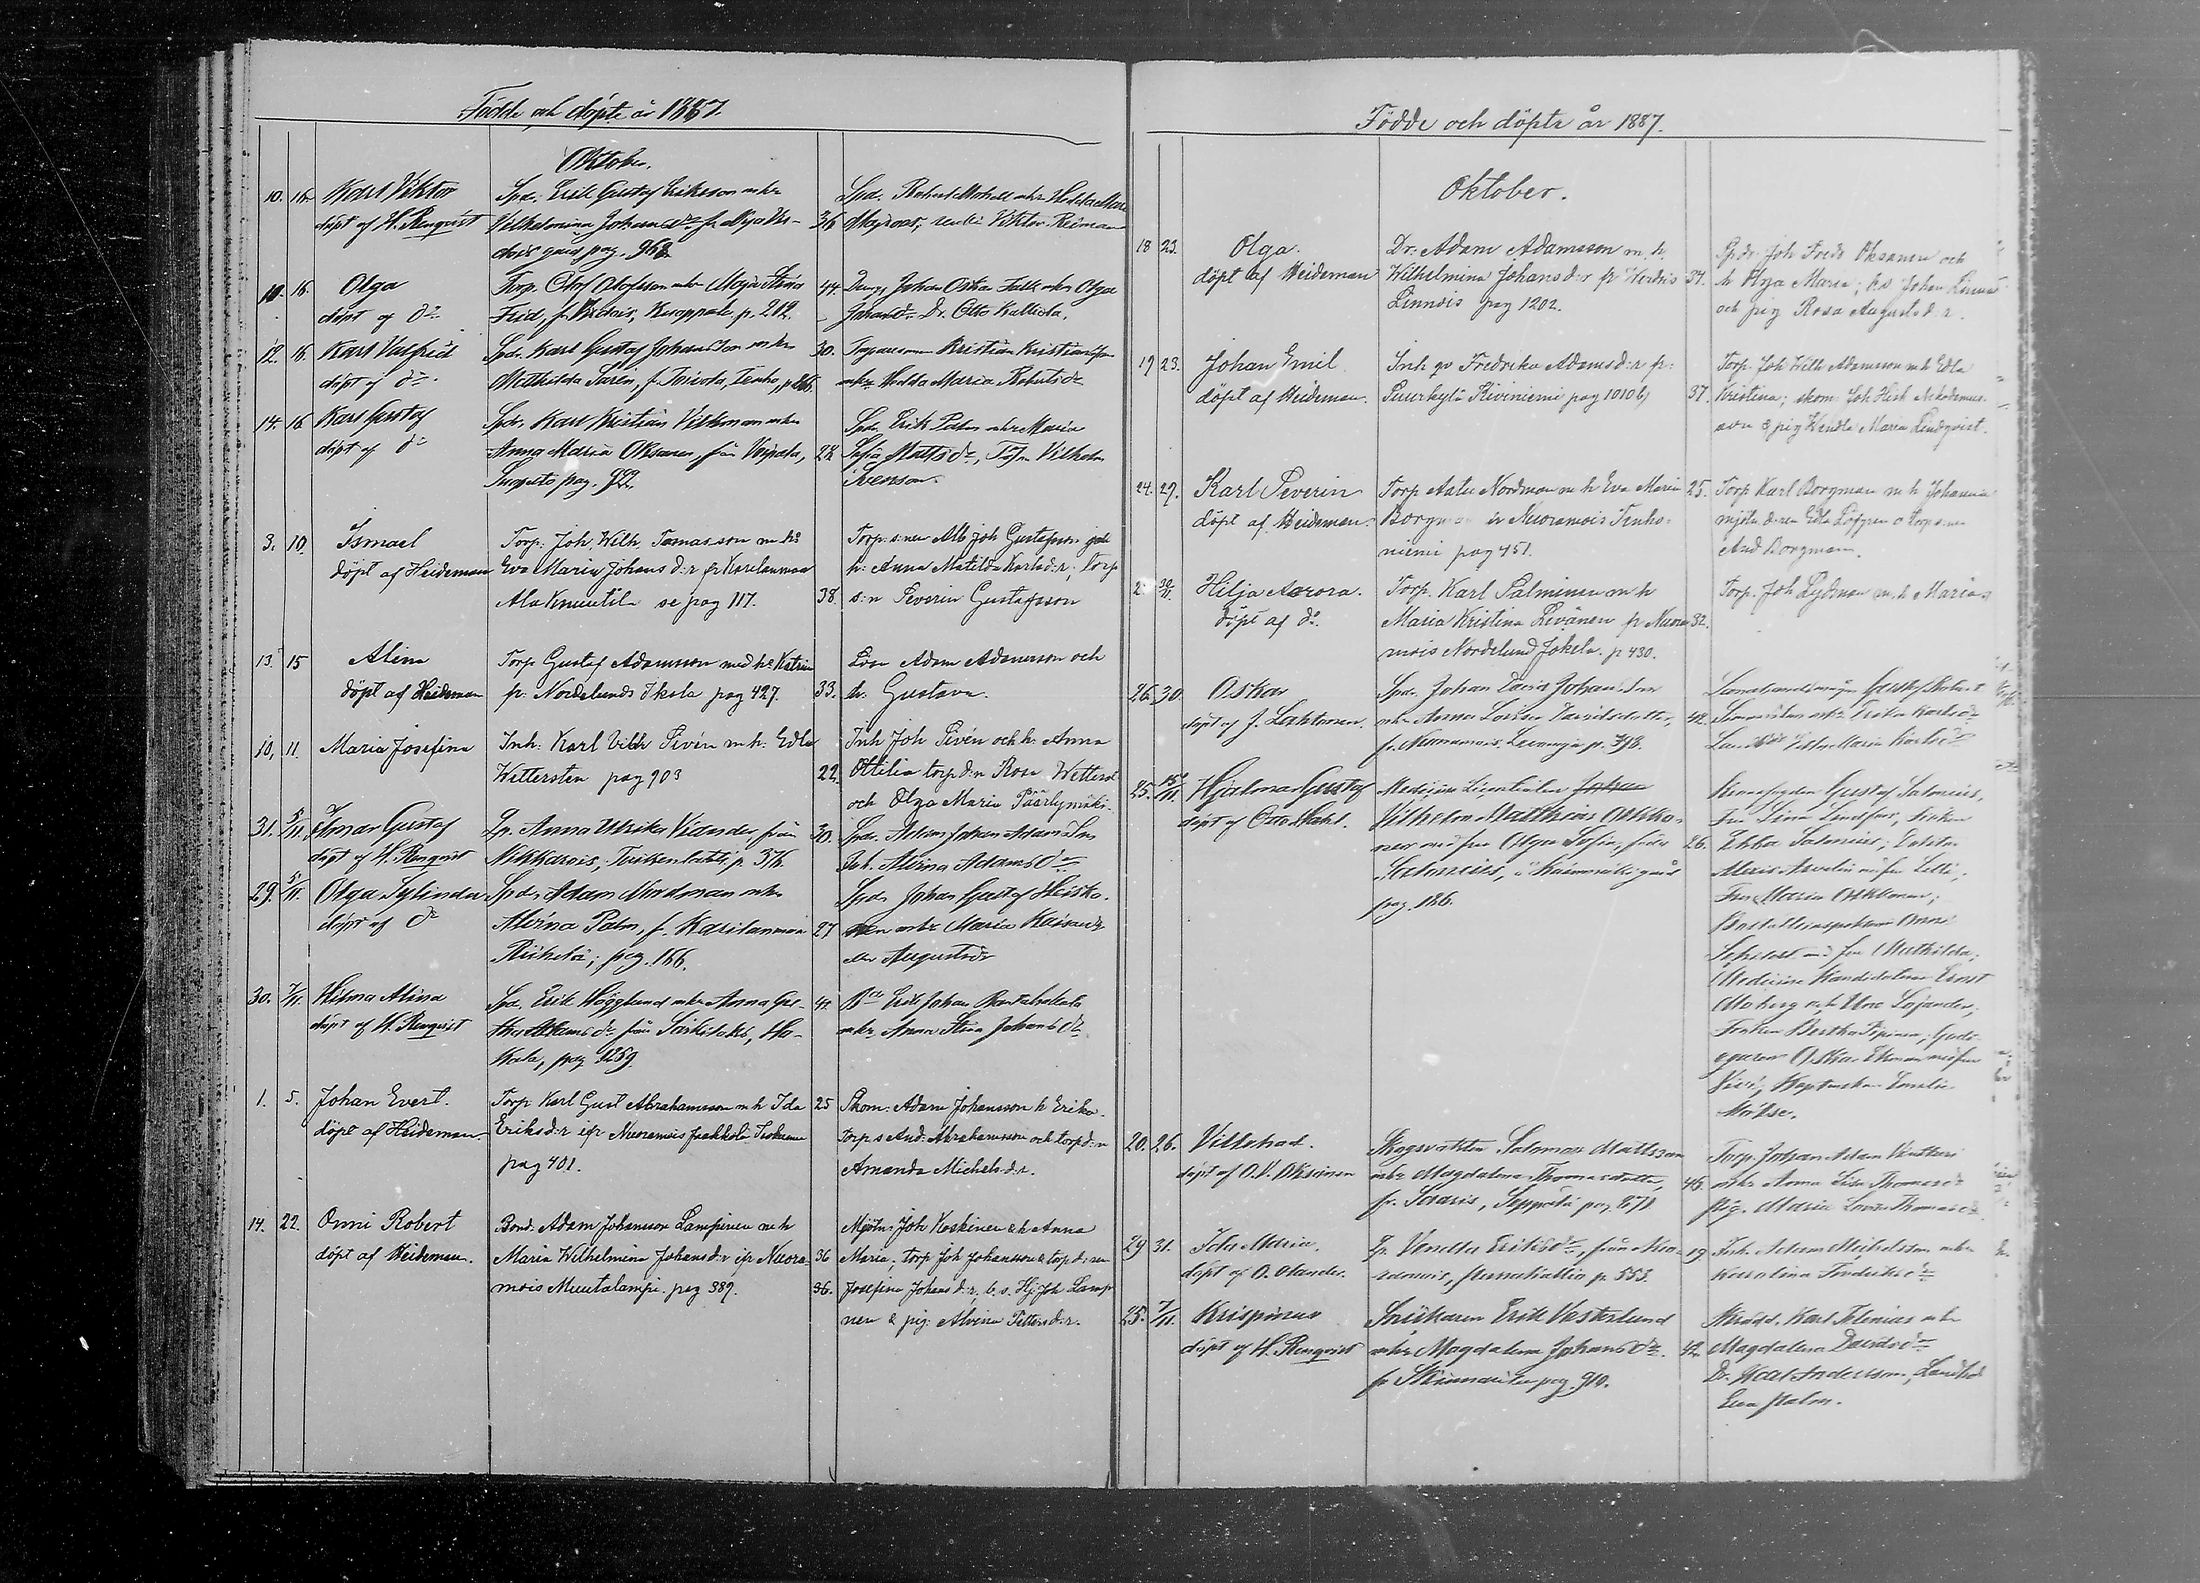 Födde och döpte år 1887.
Oktober.
10. 16. Karl Viktor
döpt af H. Renqvist
Spd. Erik Gustaf Eriksson mhr
Vilhelmina Johansdr fr Nya
pag. 968
36
Spd. Robert mhr Hedda Maria
Viktor Reiman
10. 16. Olga
döpt af do
Torp. Olof Olofsson mhr Maja Stina
Frid, fr Kuoppala p. 212.
44.
Johan Oskar Falk mhr Olga
Dr. Otto Kalliola.
12. 16. Karl Valfrid
döpt af do
Spd. Karl Gustaf Johansson mhr
Mathilda Sarin, fr Toivola, Tenho,
30.
Kristian Kristiansson
mhr Hedda Maria Robertsdr
14. 16. Karl Gustaf
döpt af do
Spd. Karl Kristian Vilkman mhr
Anna Maria Oksanen, från Voipala,
pag. 922.
28
Spd. Erik Palm mhr Maria
Sofia Mattsdr, Vilhelm
Svenson.
3. 10. Ismael
döpt af Heideman
Torp. Joh. Wilh. Tomasson m hs
Eva Maria Johans d:r fr Karilanmaa
Ala Knuutila se pag 117.
38.
Torp. s:nen Alb Joh Gustafsson
h: Anna Matilda Karls d:r; torp
s:n Severin Gustafsson
13. 15 Alina
döpt af Heideman
Torp Gustaf Adamsson med h: Katrina
fr. Nordslunds Ikola pag 427.
33.
Lösa Adam Adamsson och
h. Gustava.
10, 11. Maria Josefina
Inh: Karl Vilh Sivén m h. Edla
Wettersten pag 903
22.
Inh Joh Sivén och h. Anna
Ottilia torp d:n Rosa Wetterst.
och Olga Maria Päärlymäki.
31. 5/11. Elmar Gustaf
döpt af H. Renqvist
Lp. Anna Ulrika Viander från
Nikkarois, p. 376.
30.
Spd. Adam Johan Adamsson
Inh. Alvina Adamsdr
29. 5/11. Olga Sylinda
döpt af do
Spd. Adam Nordman mhr
Alvina Palm, f. Karilanmaa
Riihelä; pag. 166.
27
Spd. Johan Gustaf Heiska-
nen mhr Maria
Augustdr
30. 7/11. Hilma Alina
döpt af H. Renqvist
Spd. Erik Högglund mhr Anna Gre-
tha Adamsdr från Särkilaks, Ha-
kala, pag. 1259.
42
Erik Johan Rantalaskala
mhr Anna Stina Johansdr
1. 5. Johan Evert.
döpt af Heideman.
Torp Karl Gust Abrahamsson m h Ida
Eriks d:r ifr Nuoramois Jaakkola
pag 401.
25
Skom: Adam Johansson h Erika.
Torp s And: Abrahamsson och torp d:n
Amanda Michels d:r.
14. 22. Onni Robert
döpt af Heideman.
Bond: Adam Johansson Lampinen m h
Maria Wilhelmina Johans d:r ifr Nuora-
mois Muutalampi. pag 387.
36
36.
Mjöln: Joh Koskinen & h Anna
Maria; torp. Joh Johansson & torp d:ren
Josefina Johans d:r, b. s. Hj. Joh Lampi
nen & pig: Alvina Petters d:r.
Födde och döpte år 1887.
Oktober.
18 23. Olga.
döpt af Heideman
Dr. Adam Adamsson m. h.
Wilhelmina Johans d:r fr Werdois
Linnois pag 1202.
34.
Spdr. Joh Fredr Oksanen och
h Olga Maria; b s Johan
och pig Rosa Augusts d:r.
19 23. Johan Emil.
döpt af Heideman.
Inh qv Fredrika Adams d:r fr:
Puurkylä Riviniemi pag 1010 b)
37.
Torp. Joh Wilh Adamsson m h Edla
Kristina; skom: Joh Hisk Nikodemus-
son & pig Wendla Maria Lindqvist.
24. 29. Karl Severin
döpt af Heideman.
Torp Aatu Nordman m h Eva Maria
Borgman ifr Nuoramois Tenho-
niemi pag 451.
25.
Torp Karl Borgman m h Johanna
mjöln. d:ren Edla Löfgren o torp s:nen
And Borgman.
30/11. Hilja Aurora.
döpt af do.
Torp. Karl Salminen m h
Maria Kristina Levänen fr Nuora
mois Nordslund Jokela. p 430.
32.
Torp. Joh Lydman m. h Maria
26. 30. Oskar
döpt af J. Lahtonen.
Spd. Johan David Johansson
mhr Anna Lovisa Davidsdotter,
fr. Nuoramois, p. 398.
42.
Gustaf Robert
25. 15/11. Hjalmar Gustaf
döpt af Otto Stahl.
Medicine Licentiaten Johan
Vilhelm Matthias Oskko-
nen med fru Olga Sofia, född
Salonius, i gård
pag. 186.
26.
Kronofogden Gustaf Salonius,
Fru Lina Lindfors, fröken
Ebba Salonius; Doktor
med fru Lilli;
Fru Maria Oskkonen;
med fru Mathilda;
Medicine Kandidaten Ernst
Moberg
Fröken Bertha Sipinen; Gods-
egaren Oskar Ekman med fru
Kaptenskan Emilie
20. 26. Villehad.
döpt af O. V. Oksanen
Skogsvakten Salomon Mattsson
mhr Magdalena Thomasdotter,
fr. Sääris, Seppälä pag. 671
45.
Torp. Johan Adam
mhr Anna Lisa Thomasdr
Pig. Maria Lovisa Thomasdr
29 31. Ida Maria.
döpt af O. Olander.
Lp. Vendla Eriksdr, från Nuo-
ramois, p. 553.
19.
Inh. Adam Michelsson mhr
Karolina Fredriksdr
25. 7/11. Krispinus
döpt af H. Renqvist
Snickaren Erik Vesterlund
mhr Magdalena Johansdr.
fr pag. 910.
42.
Skrädd. Karl Telenius mhr
Magdalena Davidsdr
Dr. Karl Andersson,
Eva Malm.